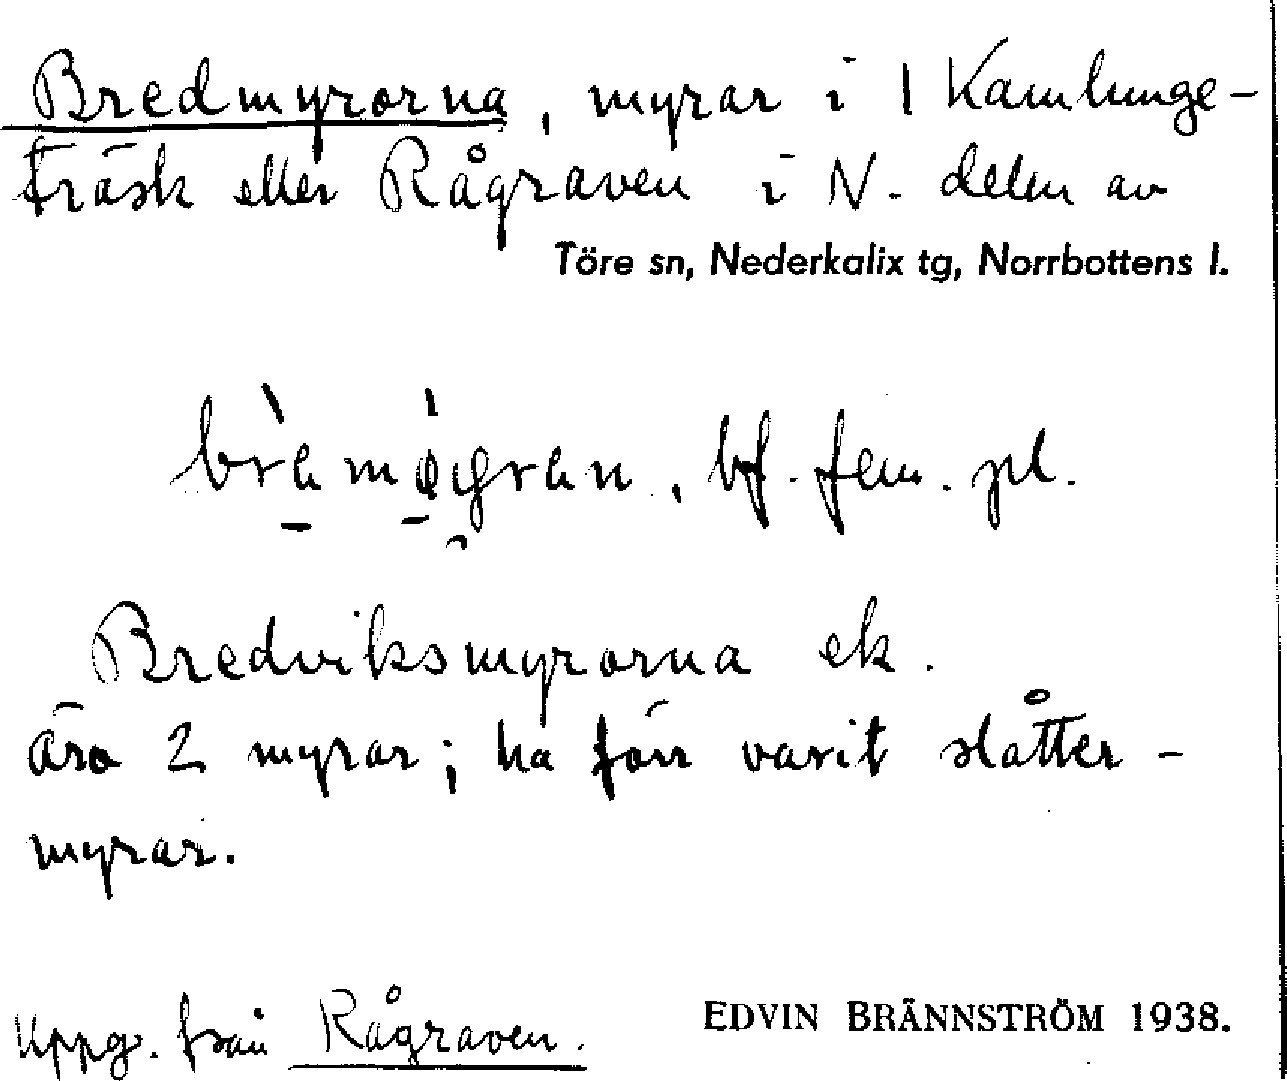 Bredmyrorna, myrar i 1 Kamlunge-
träsk eller Rågraven i N. delen av
Töre sn, Nederkalix tg, Norrbottens l.
bf. fem. pl.
Bredviksmyrorna ek.
äro 2 myrar; ha förr varit slåtter-
myrar.
Uppg. från Rågraven.
EDVIN BRÄNNSTRÖM 1938.